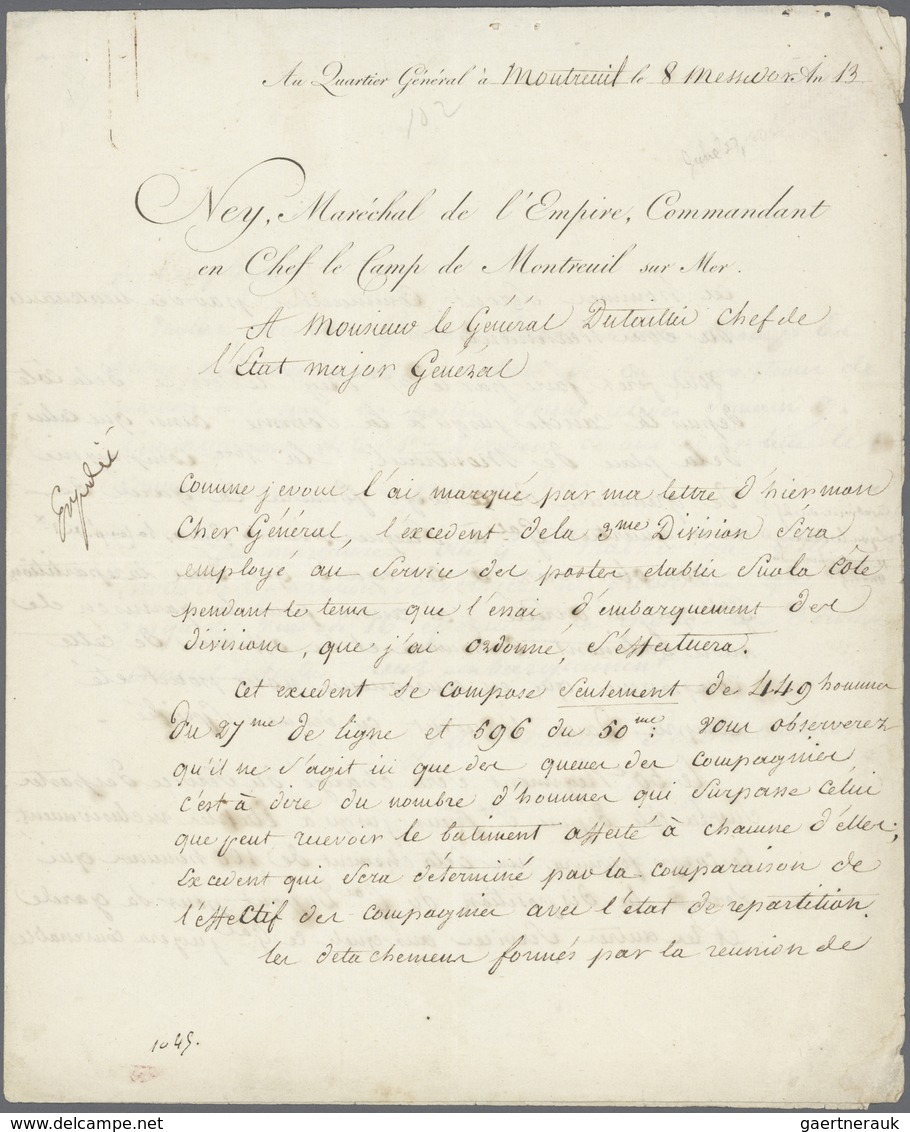 Au Quartier Général à Montreuil le 8 Messidor An 13
102
June 27,
Ney, Maréchal de l'Empire, Commandant
en Chef le Camp de Montreuil sur Mer.
A Monsieur le Général Dutaillis chef de
l'Etat major Général
Expédié
Comme je vous l'ai marqué par ma lettre d'hier mon
Cher Général, l'excedent de la 3me Division Séra
employé au Service des postes etablis Sur la côte
pendant le tems que l'essai d'embarquement des
divisions, que j'ai ordonné, S'éffectuera.
Cet excedent Se compose Seulement de 449 hommes
du 27me de ligne et 596 du 50me: Vous observerez
qu'il ne S'agit ici que des queues des compagnies
c'est à dire du nombre d'hommes qui Surpasse Célui
que peut recevoir le bâtiment affecté à chacune d'élles;
Excedent qui Sera déterminé par la comparaison de
l'éffectif des compagnies avec l'état de repartition.
les detachemens formés par la reunion de
1045.
gaertnerauk